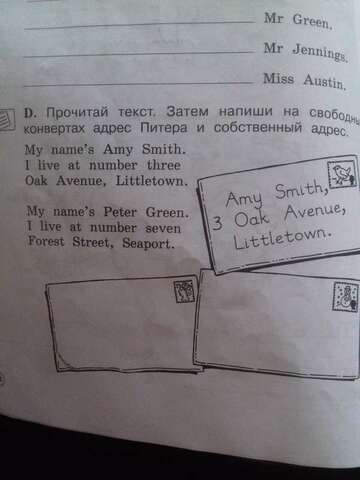 Mr Green.
Mr Jennings.
Miss Austin.
D. Прочитай текст. Затем напиши на свободны
конвертах адрес Питера и собственный адрес.
My name's Amy Smith.
I live at number three
Oak Avenue, Littletown.
My name's Peter Green.
I live at number seven
Forest Street, Seaport.
Amy Smith,
3 Oak Avenue,
Littletown.